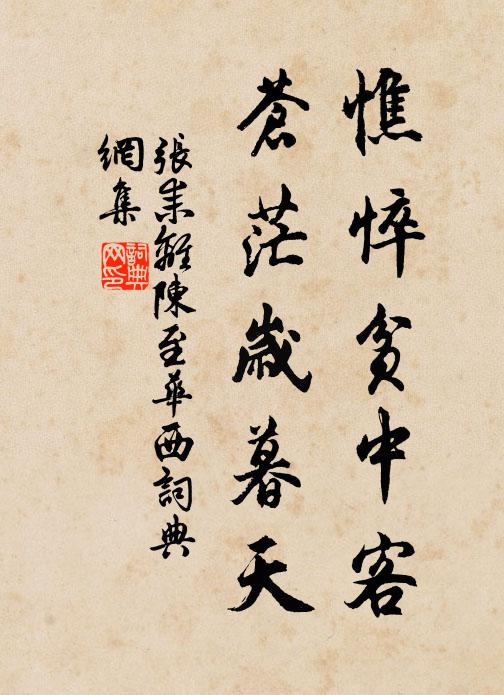 憔悴貧中客
蒼茫歲暮天
張耒離陳至華西詞典
網集
詞典網印